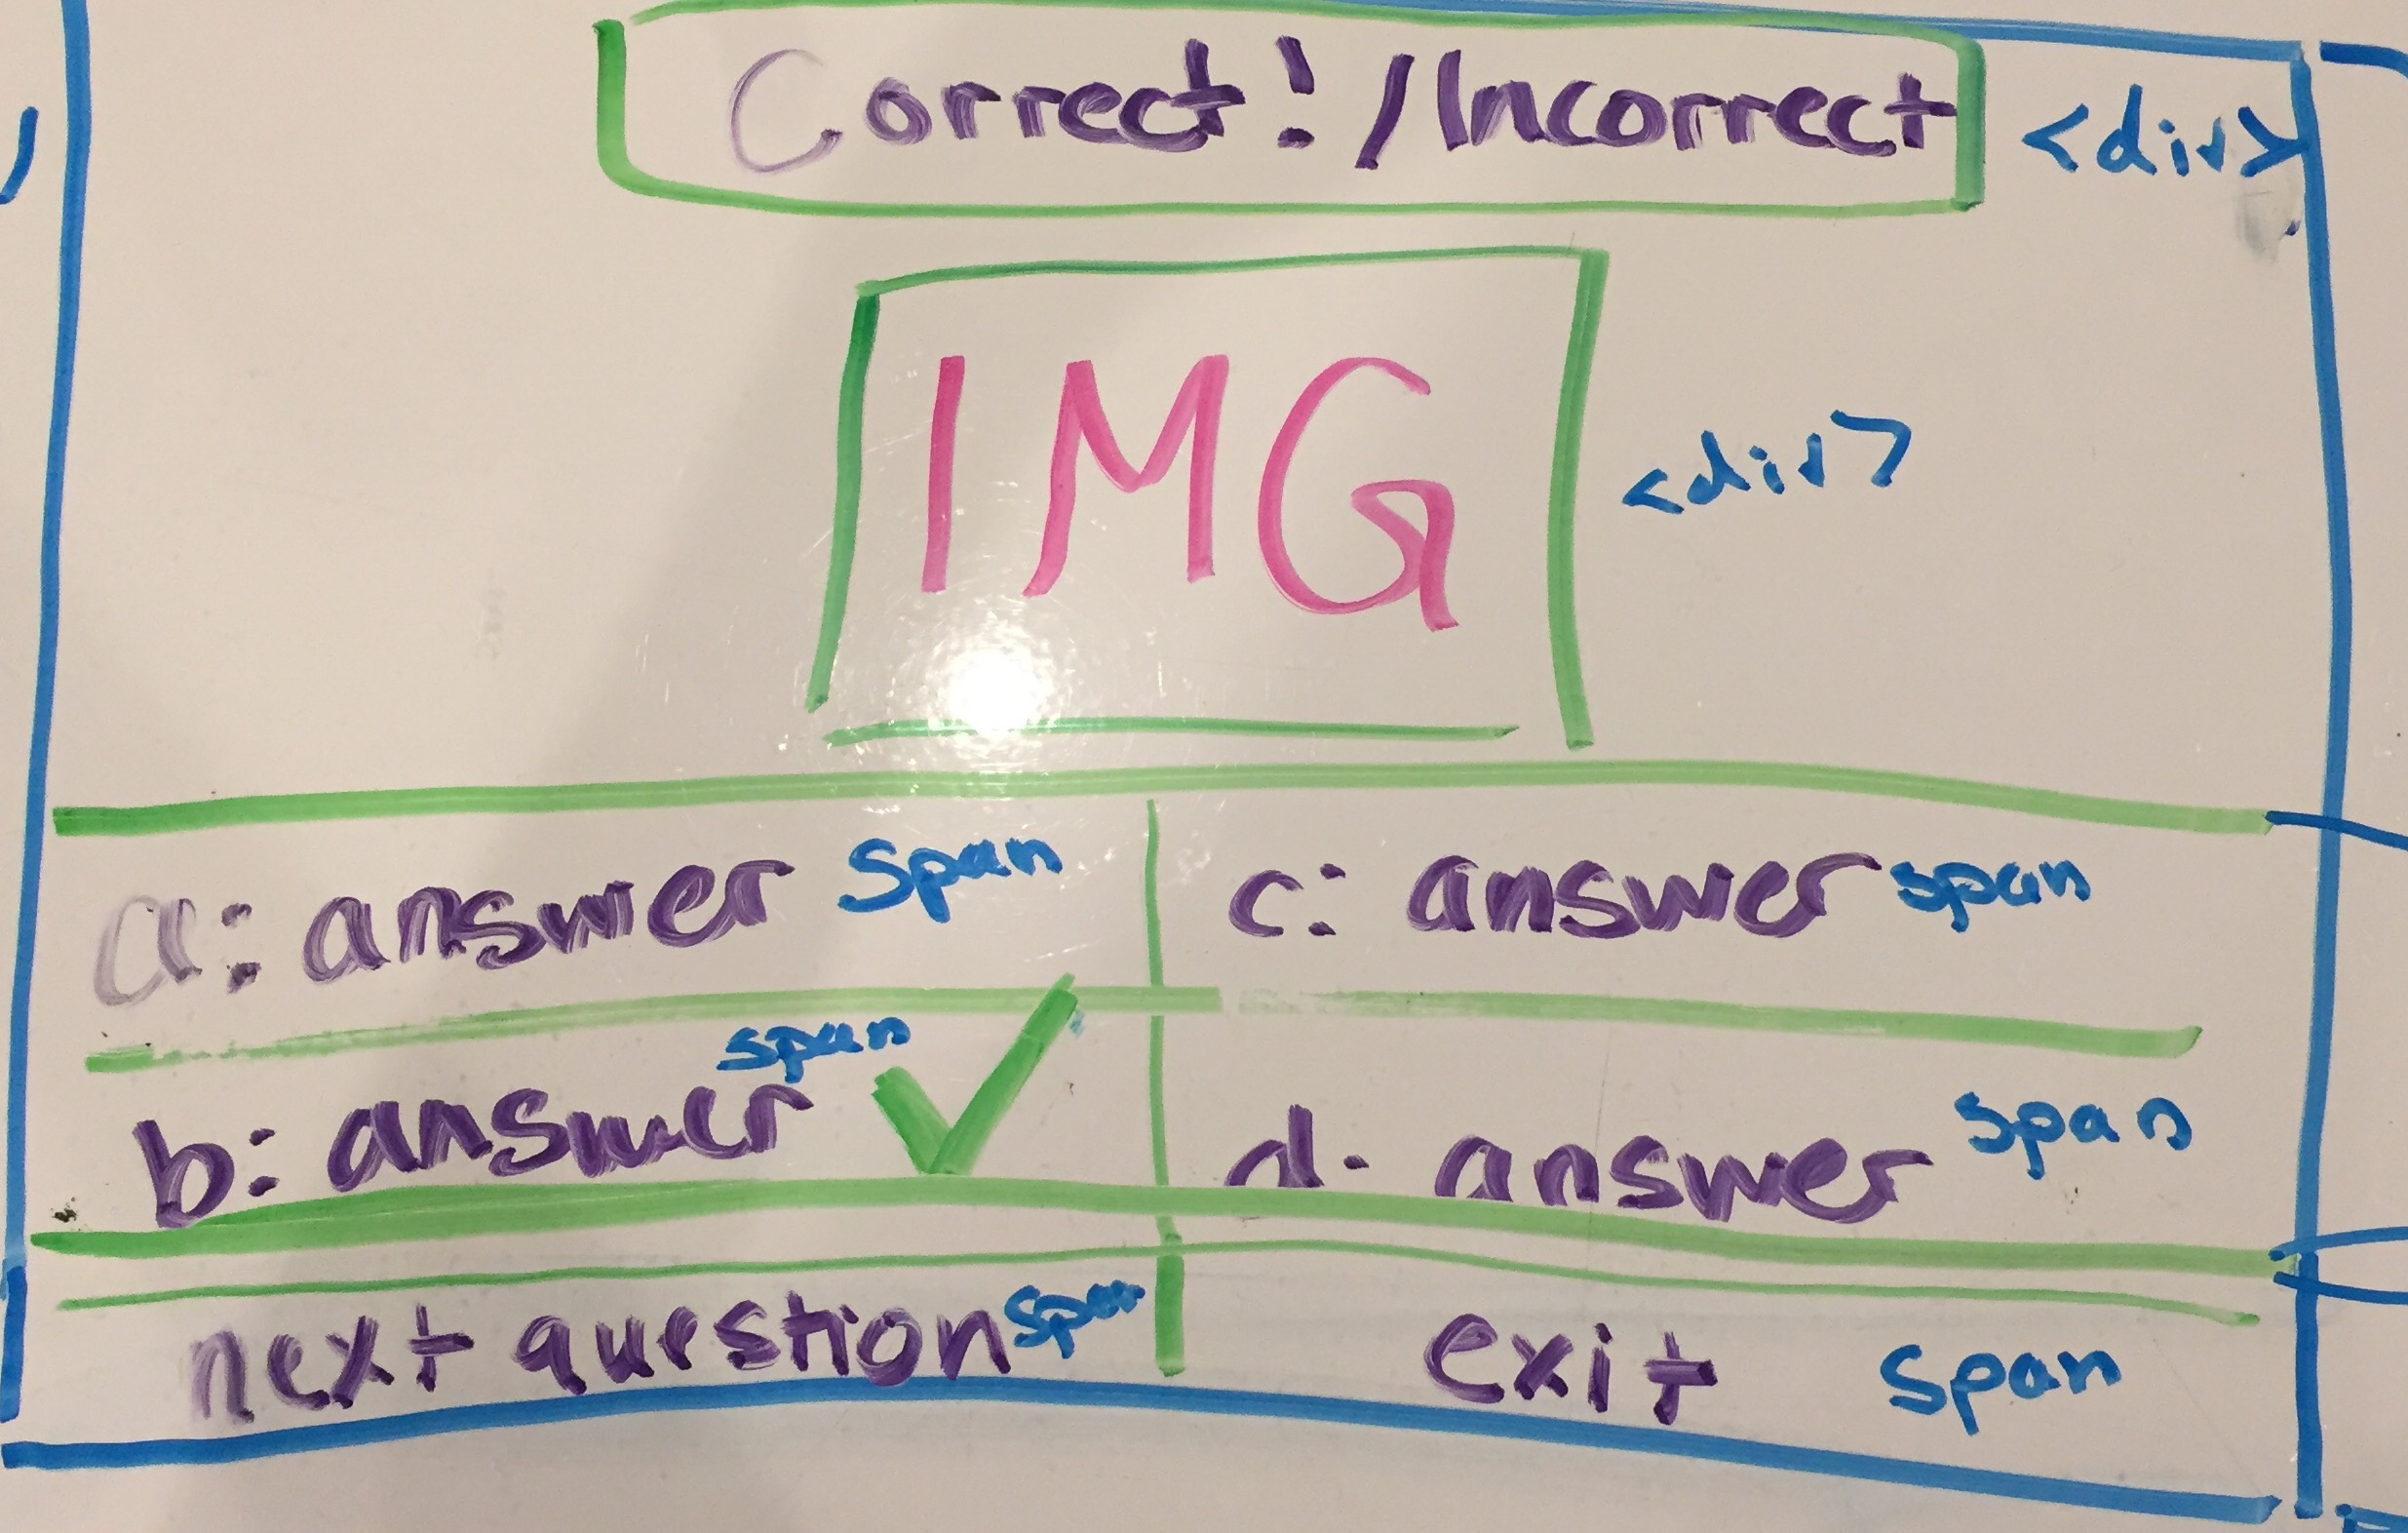 Correct! / Incorrect <div>
IMG <div>
a: answer span
c: answer span
b: answer span
d. answer span
next question span
exit span